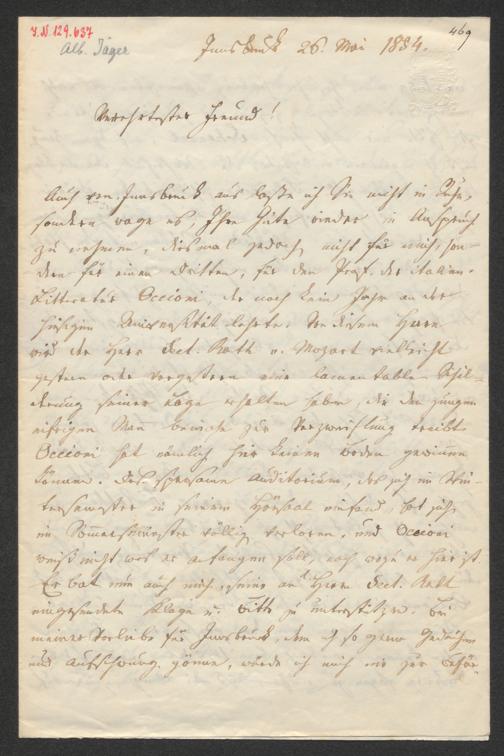 I.N. 129.637
469
Alb. Jäger
Innsbruck 26. Mai 1884.
Verehrtester Freund!
Auch von Innsbruck aus lasse ich Sie nicht in Ruhe,
sondern wage es, Ihre Güte wieder in Anspruch
zu nehmen, diesmal jedoch nicht für mich, son-
dern für einen Dritten, für den Prof. der italien.
Litteratur Occioni, der noch kein Jahr an der
hiesigen Universität lehrte. Von diesem Herrn
wird der Herr Sect. Rath v. Mozart vielleicht
gestern oder vorgestern eine lamentable Schil-
derung seiner Lage erhalten haben, die den jungen
eifrigen Mann beinahe zur Verzweiflung treibt.
Occioni hat nämlich hier keinen Boden gewinnen
können. Das sparsame Auditorium, das sich im Win-
tersemester in seinem Hörsal einfand, hat sich
im Sommersemester völlig verloren, und Occioni
weiß nicht was er anfangen soll, noch wozu er hier ist.
Er bat nun auch mich, seine an Herrn Sect. Rath
eingesendete Klage u. Bitte zu unterstützen. Bei
meiner Vorliebe für Innsbruck, dem ich so gern Gedeihen
und Aufschwung gönne, würde ich mich nie zur